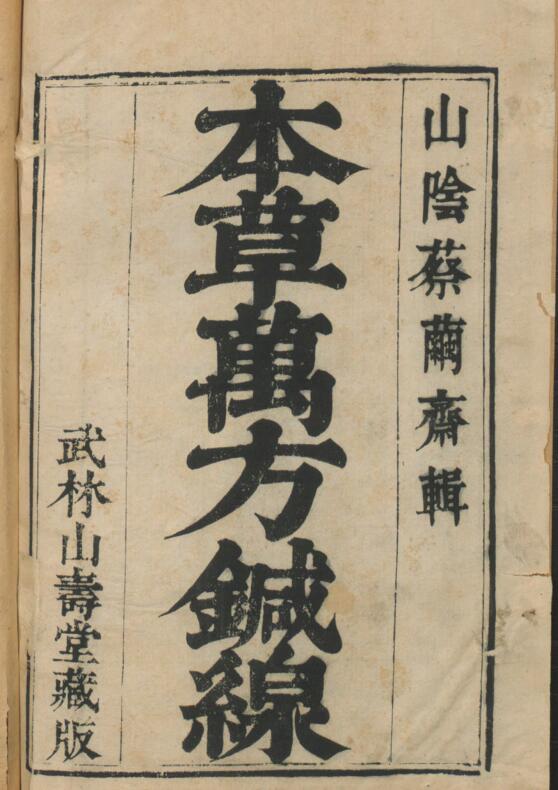 山陰蔡繭齋輯
本草萬方鍼線
武林山壽堂藏版